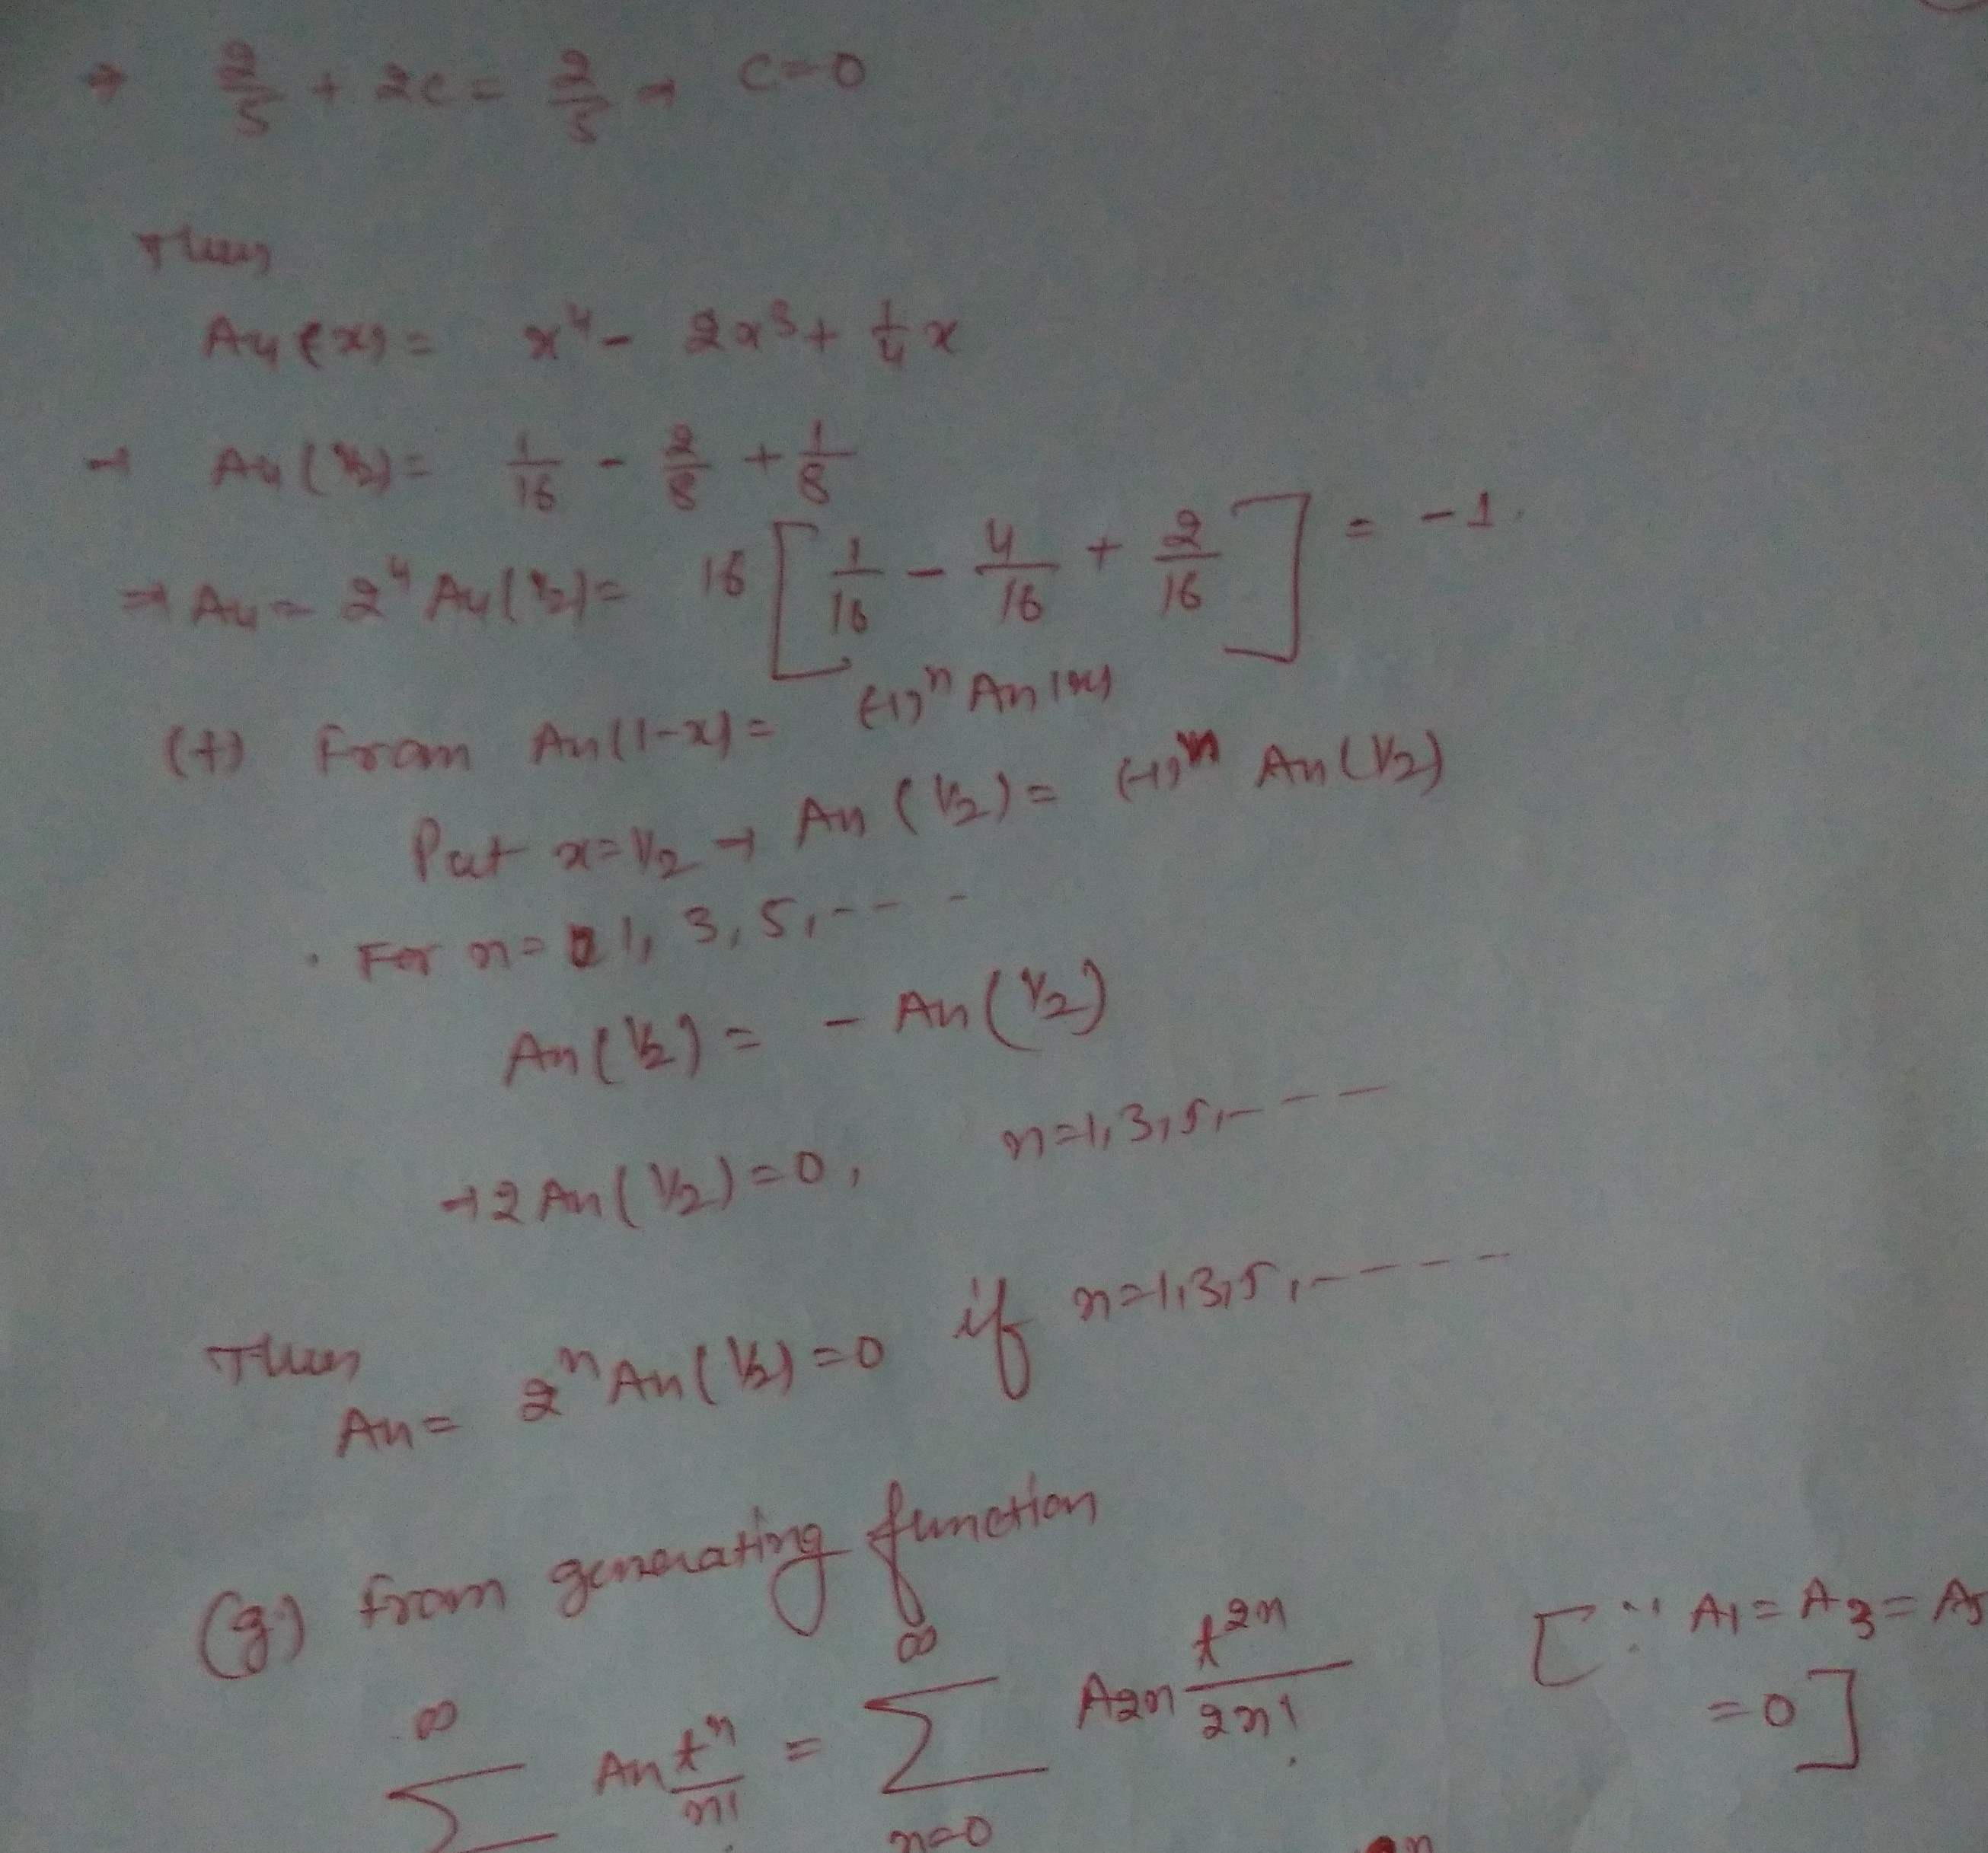 ⇒ 2/5 + 2c = 2/5 → c=0
Then
A4(x) = x^4 - 2x^3 + 1/4 x
→ A4(1/2) = 1/16 - 2/8 + 1/8
⇒ A4 = 2^4 A4(1/2) = 16 [1/16 - 4/16 + 2/16] = -1.
(f) From An(1-x) = (-1)^n An(x)
Put x=1/2 → An(1/2) = (-1)^n An(1/2)
. For n = 1, 3, 5, ---
An(1/2) = - An(1/2)
→ 2 An(1/2) = 0, n=1,3,5,----
Then
An = 2^n An(1/2) = 0 if n=1,3,5,-----
(g) from generating function
∞ ∑ An t^n/n! = ∞ ∑ n=0 A2n t^2n/2n! [∵ A1 = A3 = A5
=0]